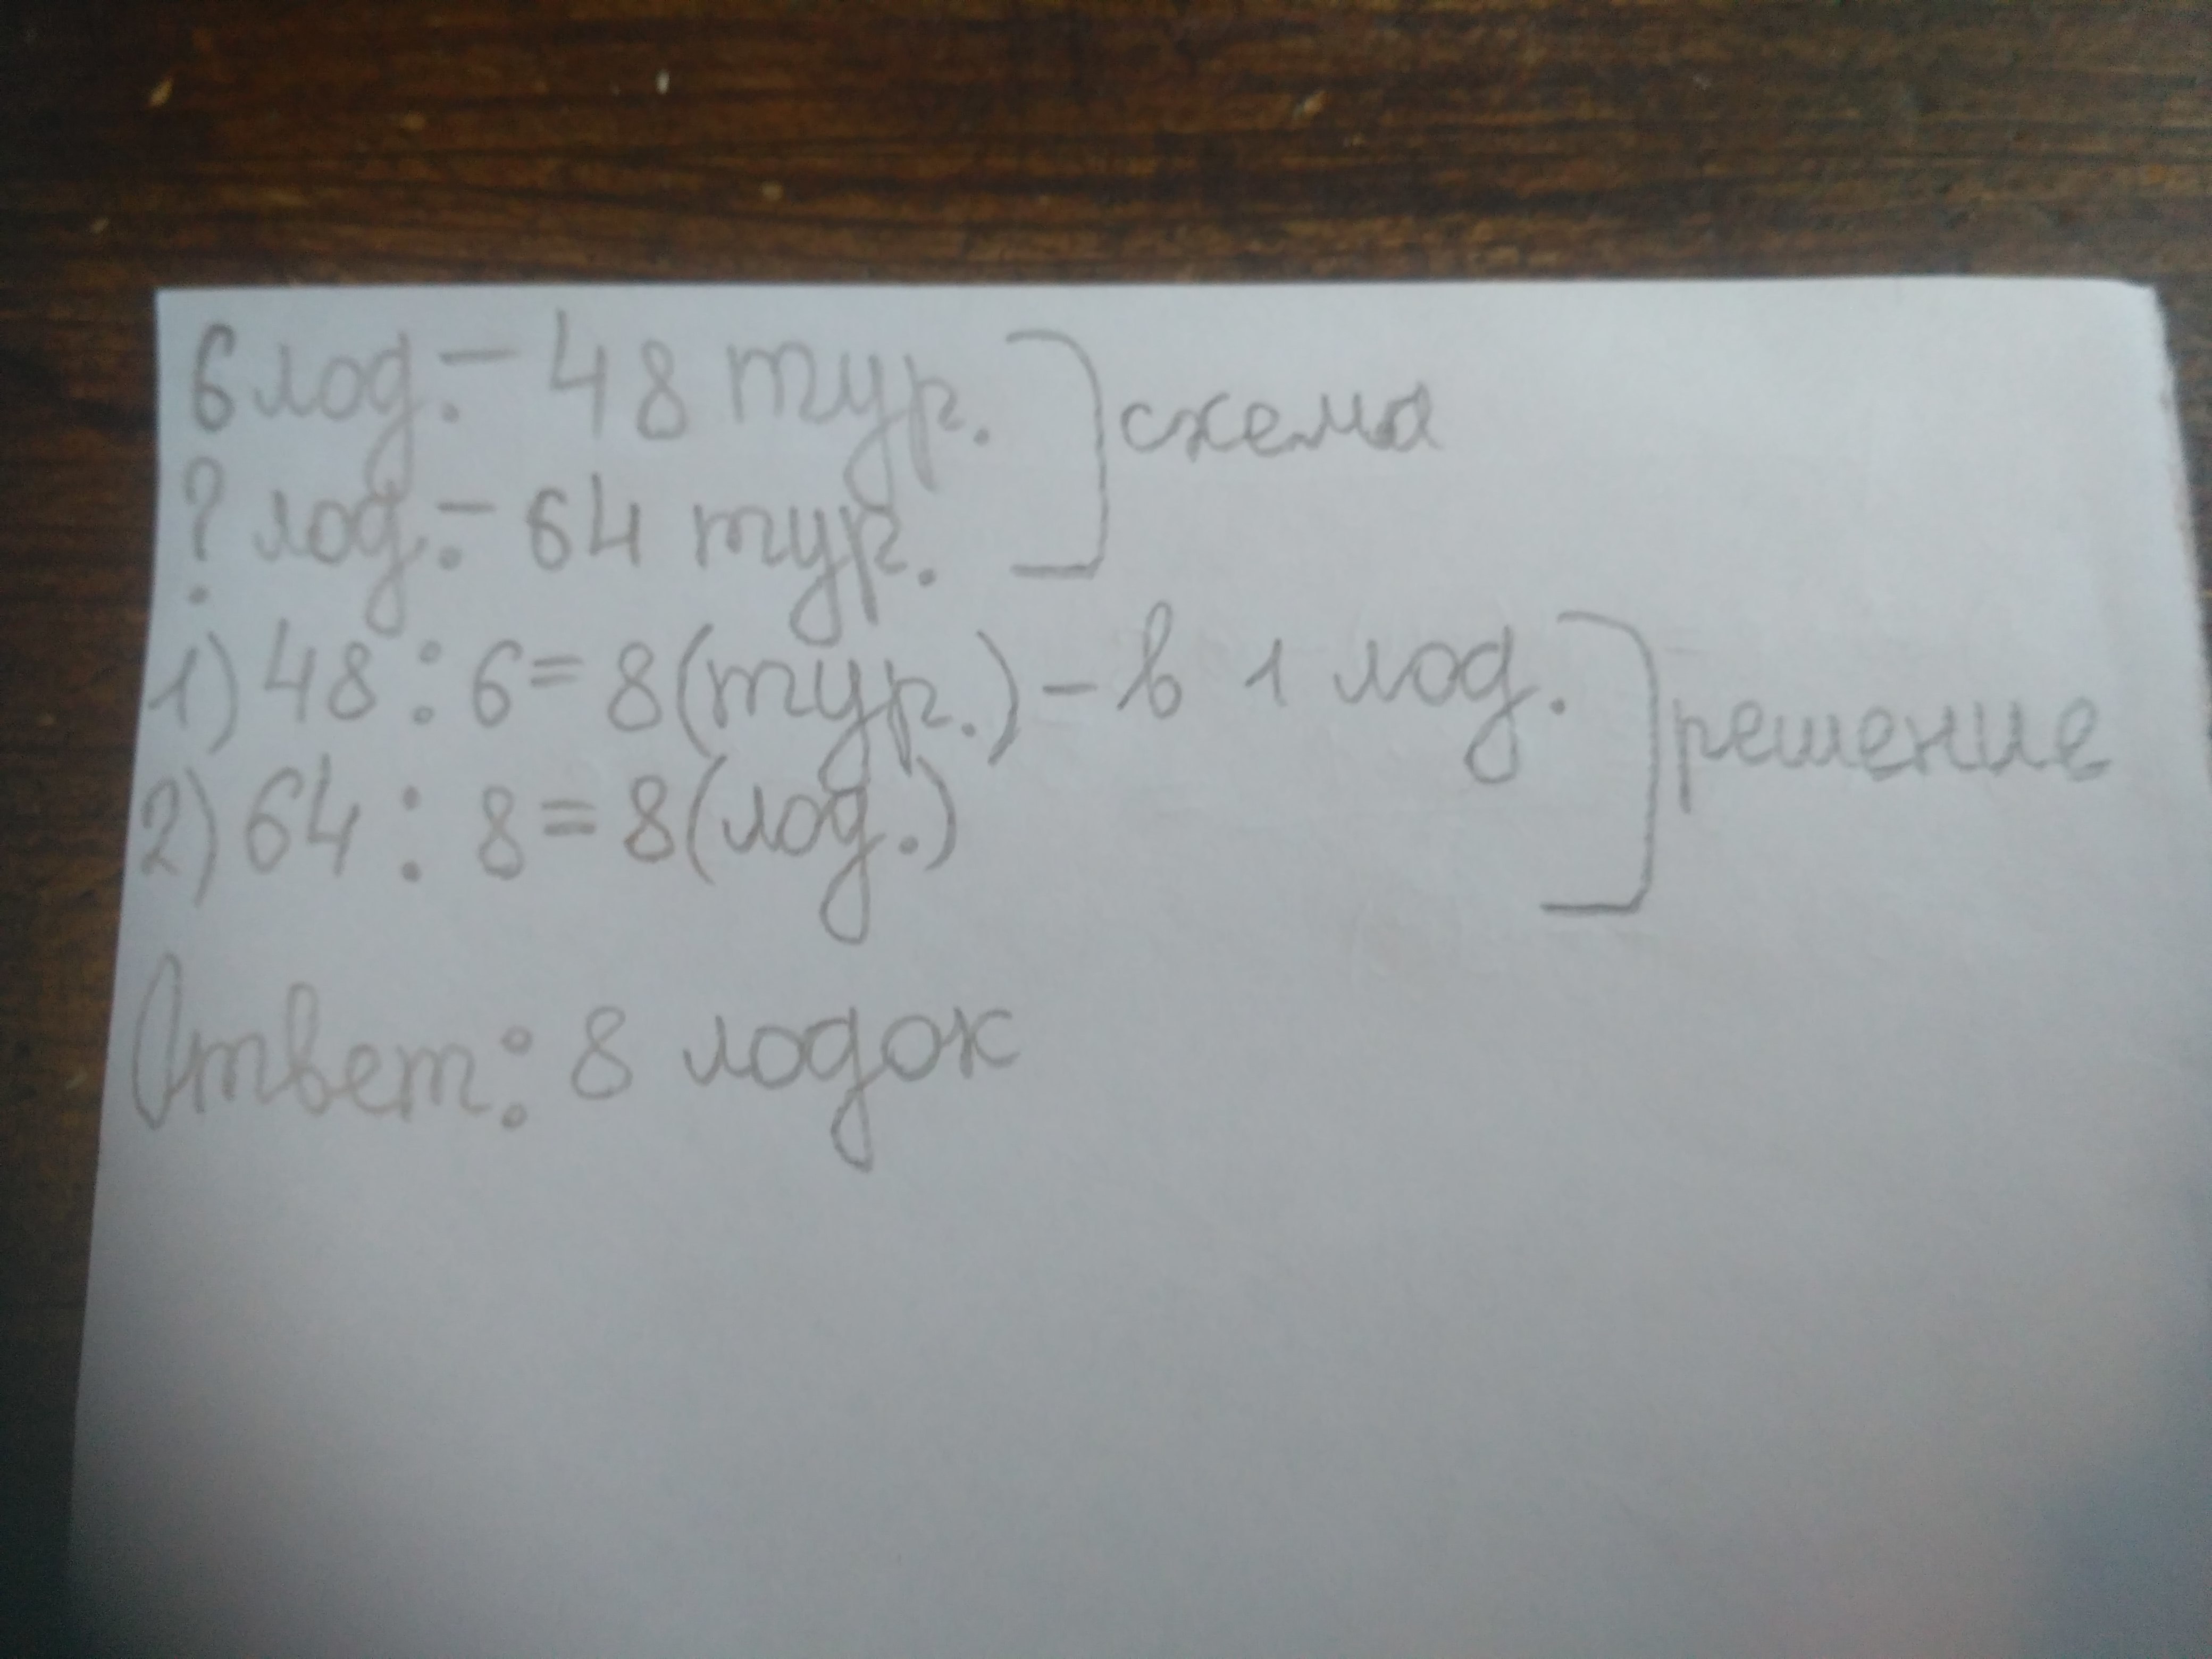 6 лод. - 48 тур. ] схема
? лод. - 64 тур.
1) 48 : 6 = 8 (тур.) - в 1 лод. ] решение
2) 64 : 8 = 8 (лод.)
Ответ: 8 лодок